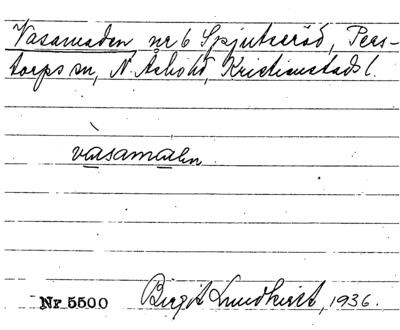 Vasamaden nr 6 Spjutseröd, Pers-
torps sn, N. Åsbo hd, Kristianstads l.
vàsamaden
Nr 5500 Birgit Lundkvist, 1936.